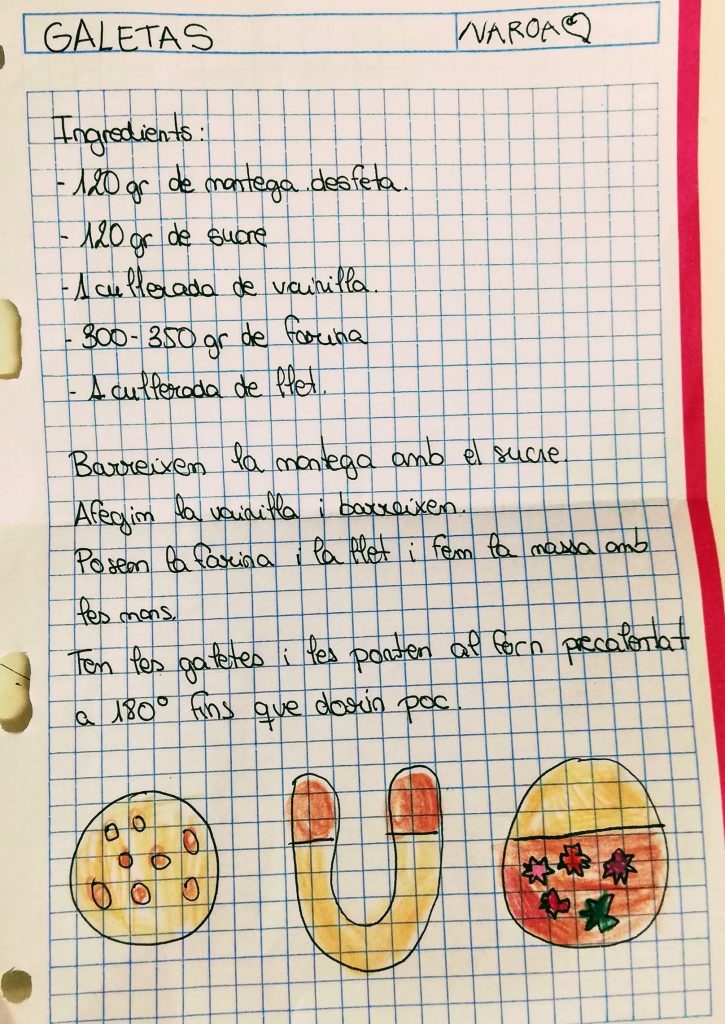 GALETAS
NAROA
Ingredients:
- 120 gr de mantega desfeta.
- 120 gr de sucre
- 1 cullerada de vainilla.
- 300-350 gr de farina
- 1 cullerada de llet.
Barreixen la mantega amb el sucre.
Afegim la vainilla i barreixen.
Posem la farina i la llet i fem la massa amb
les mans.
les galetes i les al forn precalentat
a 180° fins que dorin poc.